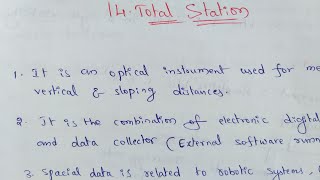 14. Total Station
1. It is an optical instrument used for me
vertical & sloping distances.
2. It is the combination of electronic digital
and data collector (External software runn
3. Spacial data is related to robotic systems,